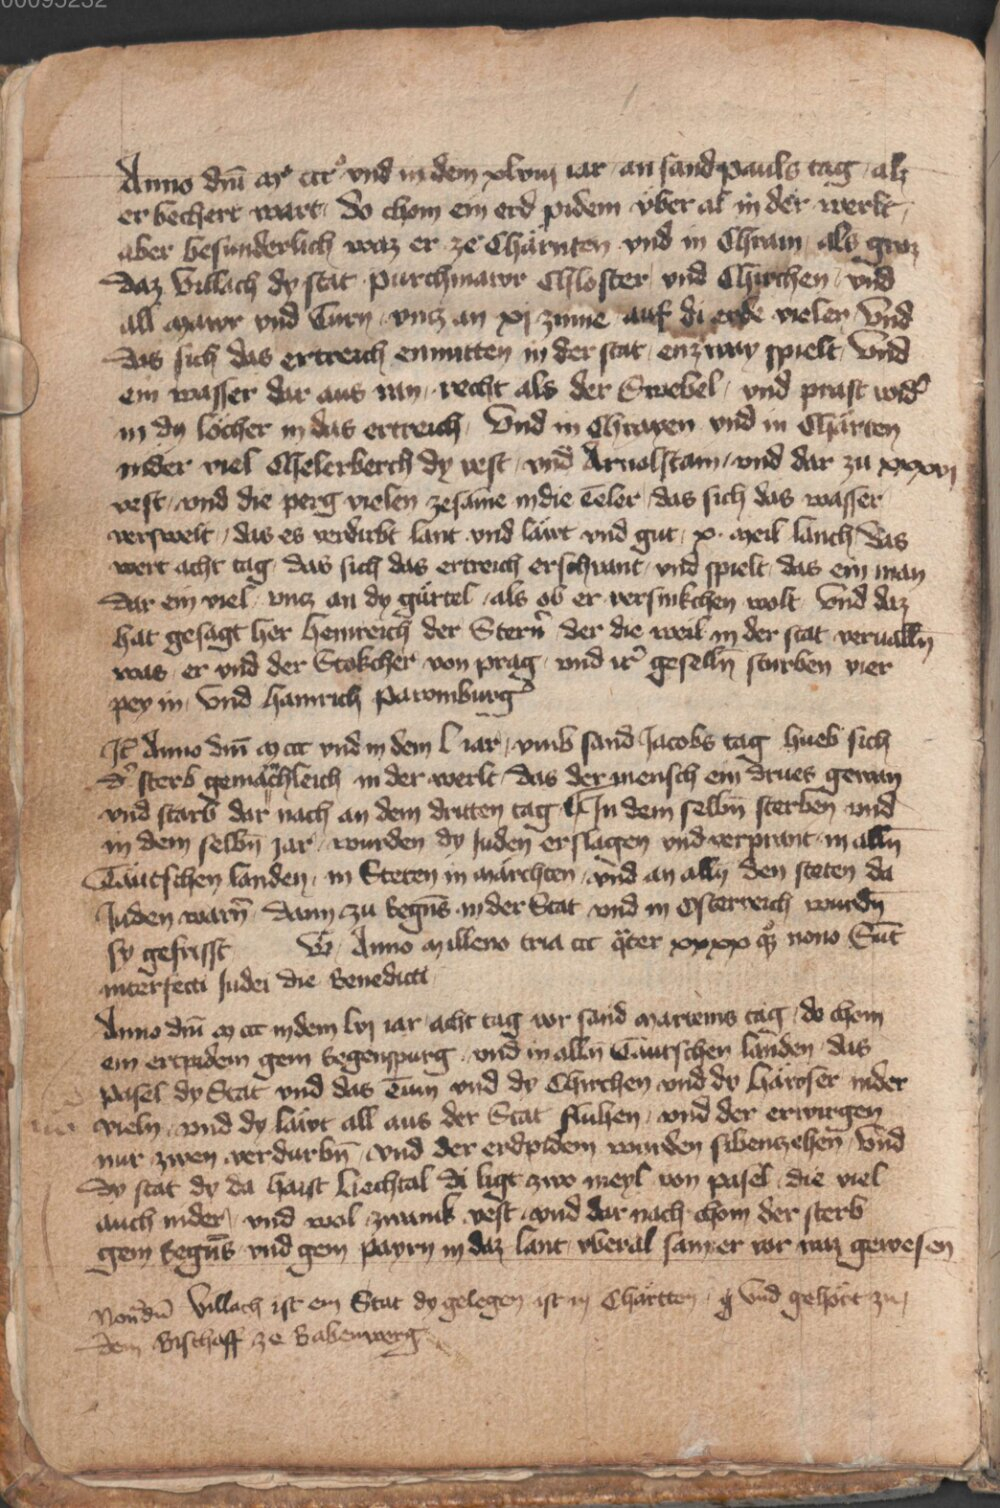 00095232
Anno dnī mº cccº vnd in dem xlviij iar an sand pauls tag alz
er bechert wart do chom ein erd pidem vber al in der werlt
aber besunderlich waz er ze Chärnten vnd in Chrain als groz
Daz Villach dy stat purchmawr Chloster vnd Chirchen vnd
all mawr vnd Turn vncz an xj zinne auf di erde vielen Vnd
das sich das ertreich enmitten in der stat enzway spielt Vnd
ein wasser dar aus ran recht als der Swebel vnd prast wid
in dy löcher in das ertreich Vnd in Chrayen vnd in Chärten
nider viel Chelerberch dy vest vnd Arnolstain vnd dar zu xxxvj
vest vnd die perg vielen zesāme in die Teler das sich das wasser
verswelt das es verdirbt lant vnd läwt vnd gut x meil lanch das
wert acht tag das sich das ertreich erschrant vnd spielt das ein man
dar ein viel vncz an dy gürtel als ob er versinkchen wolt Vnd daz
hat gesagt her heinreich der Stern der die weil in der stat veruallñ
was er vnd der Stokcher von prag vnd ir geselln̄ sturben vier
pey in Vnd hainrich paromburg
It Anno dnī m ccc vnd in dem l iar vmb sand Jacobs tag hueb sich
d sterb gemächleich in der werlt das der mensch ein drues gewan
vnd starb dar nach an dem dritten tag In dem selbn̄ sterben vnd
in dem selbn̄ jar wurden dy Juden erslagen vnd verprant in alln̄
Täutschen landen in Steten in märchten vnd an alln̄ den steten da
Juden warn̄ dann zu Regn̄s in der Stat vnd in Osterreich wurdn̄
sy gefrisst Anno milleno tria ccc qter xxxx qz nono Sūt
interfecti Judei die Benedicti
Anno dnī m ccc in dem lvj iar acht tag vor sand marteins tag do chom
ein ertpidem gem Regenspurg vnd in alln̄ Täutschen landen das
pasel dy Stat vnd das Tum vnd dy Chirchen vnd dy häwser nider
vieln vnd dy läwt all aus der Stat fluhen vnd der erwirgen
nur zwen verdurbn̄ vnd der erdpidem wurden sibenzehen Vnd
dy stat dy da haist Liechtal di ligt zwo meyl von pasel die viel
auch nider vnd wol zwaink vest vnd dar nach chom der sterb
gem Regn̄s vnd gem payrn in daz lant vberal sam er vor waz gewesen
Villach ist ein Stat dy gelegen ist in Chärtten vnd gehört zu
dem Bischoff ze Babenwerg